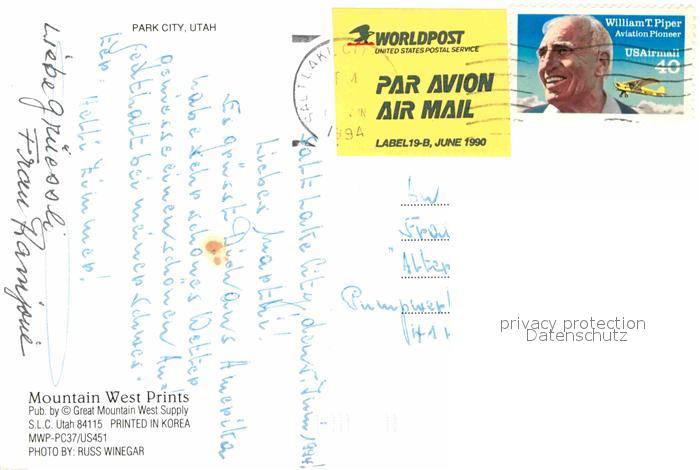 PARK CITY, UTAH
WORLDPOST
UNITED STATES POSTAL SERVICE
PAR AVION
AIR MAIL
LABEL 19-B, JUNE 1990
William T. Piper
Aviation Pioneer
USAirmail
40
SALT LAKE CITY
1994
Salt Lake City, den
Liebes
Es grüsst Dich aus Amerika
habe sehr schönes Wetter
geniesse einen schönen Auf-
enthalt bei meiner Schwes-
ter. Helli Zimmer!
Liebe Grüessli
Frau
An
Frau
privacy protection
Datenschutz
Mountain West Prints
Pub. by © Great Mountain West Supply
S.L.C. Utah 84115 PRINTED IN KOREA
MWP-PC37/US451
PHOTO BY: RUSS WINEGAR